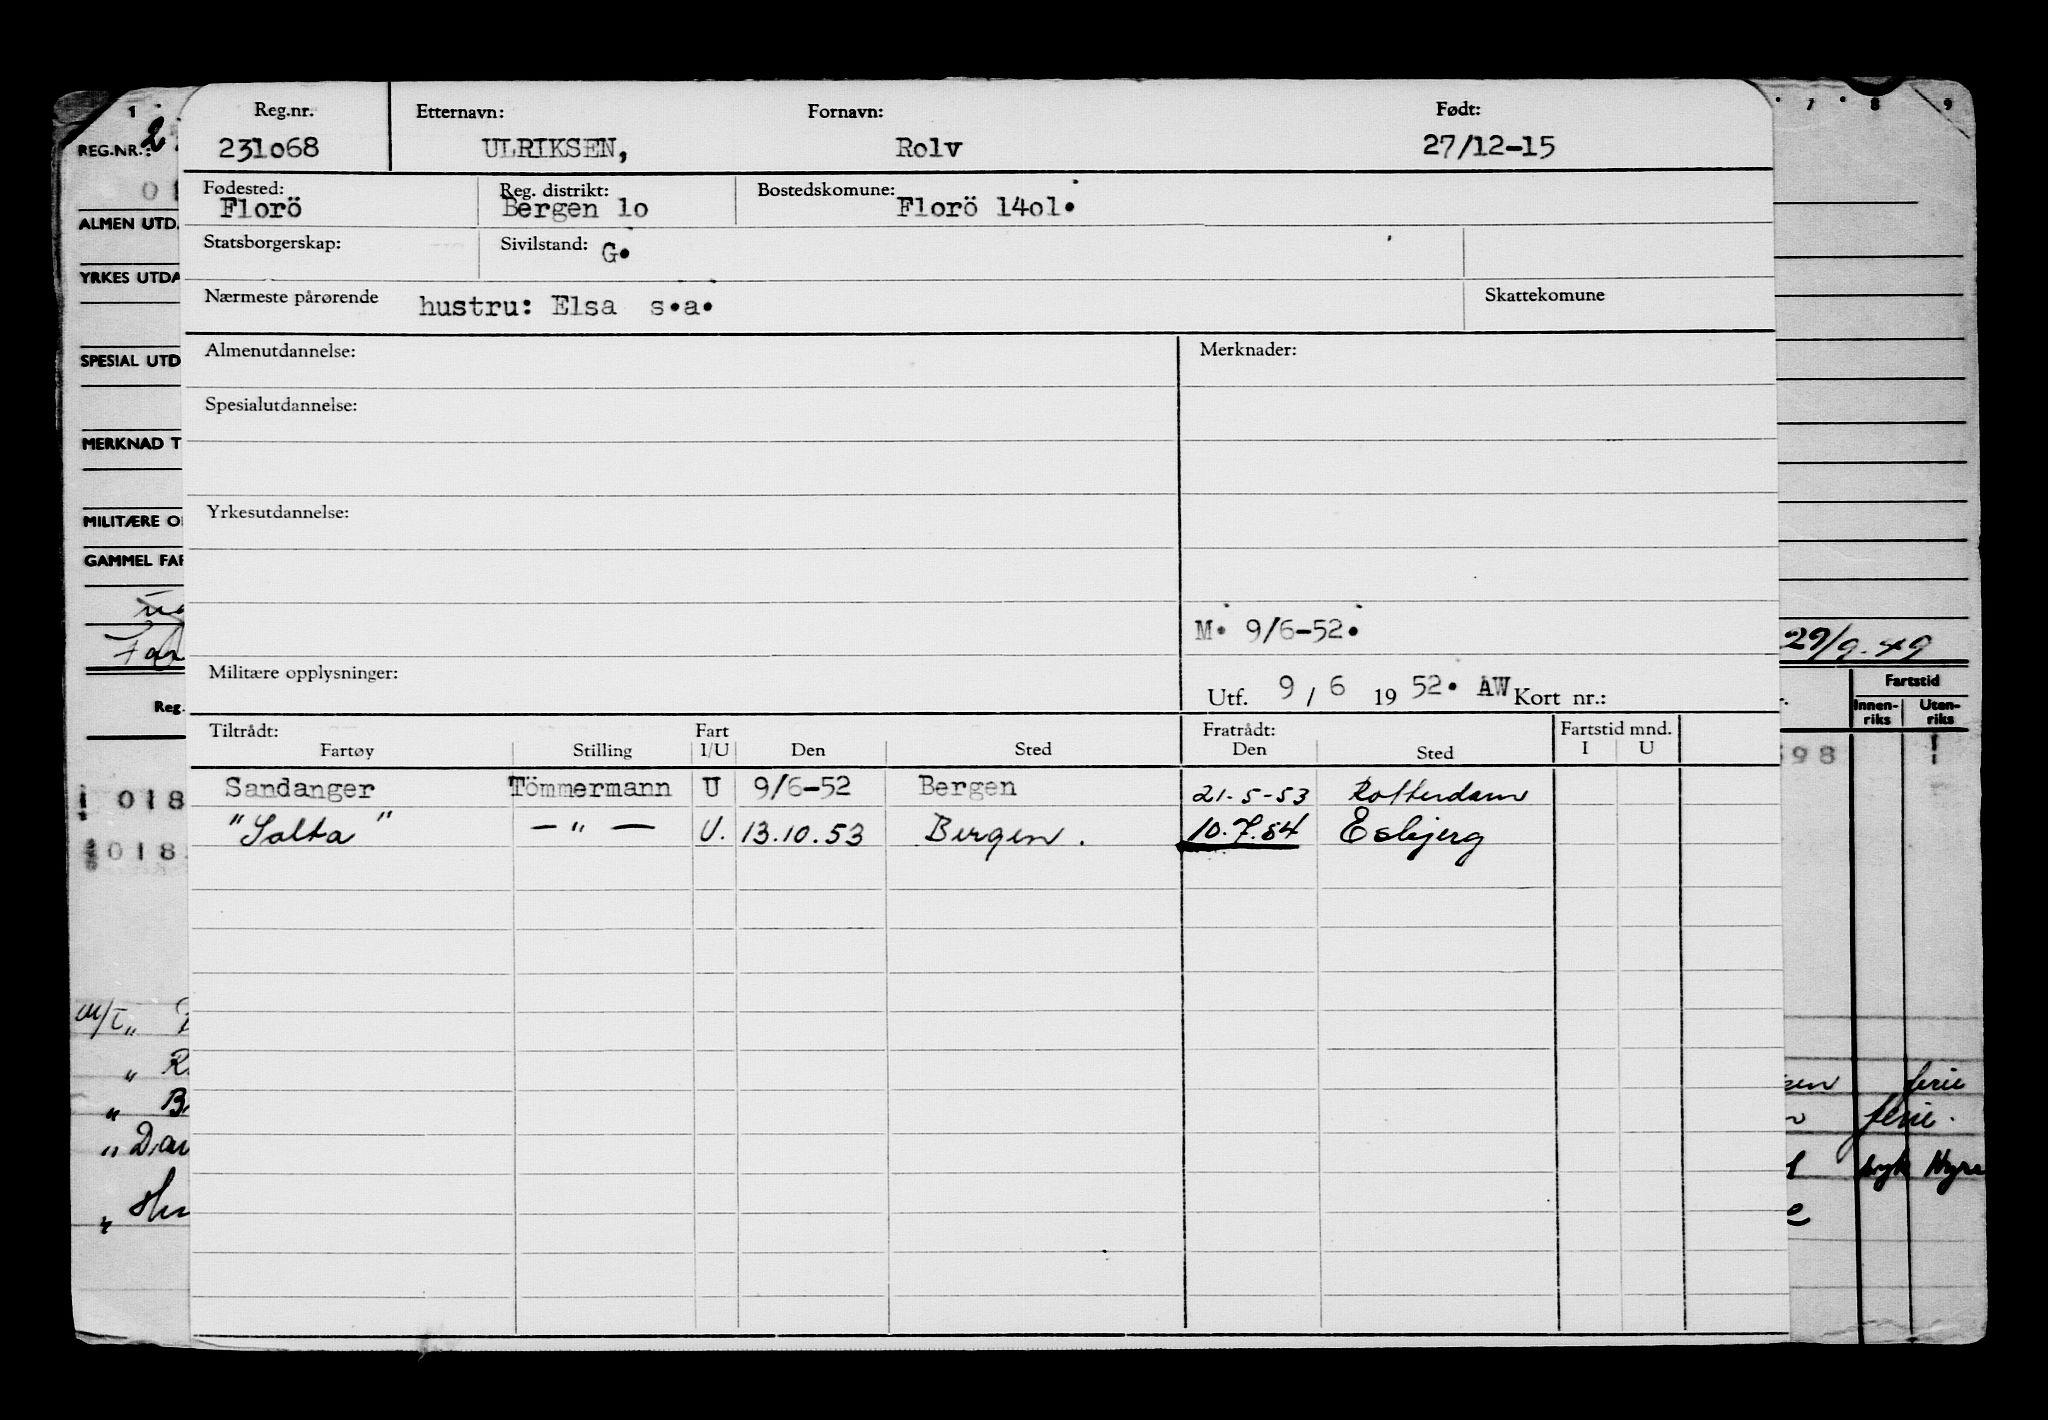 Reg.nr. Etternavn: Fornavn: Født:
231o68 ULRIKSEN, Rolv 27/12-15
Fødested: Reg. distrikt: Bostedskomune:
Florö Bergen 1o Florö 14o1.
Statsborgerskap: Sivilstand: G.
Nærmeste pårørende hustru: Elsa s.a. Skattekomune
Almenutdannelse: Merknader:
Spesialutdannelse:
Yrkesutdannelse:
M. 9/6-52.
Militære opplysninger: Utf. 9 / 6 19 52. AW Kort nr.:
Tiltrådt: Fart Fratrådt: Fartstid mnd.
Fartøy Stilling I/U Den Sted Den Sted I U
Sandanger Tömmermann U 9/6-52 Bergen 21-5-53 Rotterdam
"Salta" — " — U. 13.10.53 Bergen. 10.7.54 Esbjerg
1 7 8 9
REG.NR.: 2
ALMEN UTD.
YRKES UTDA
SPESIAL UTD
MERKNAD T
MILITÆRE O
GAMMEL FAR
29/9-49
Reg.
Fartstid
Innen-riks Uten-riks
018
018
98
M/T
ferie
" ferie.
" Dav
" Hyre